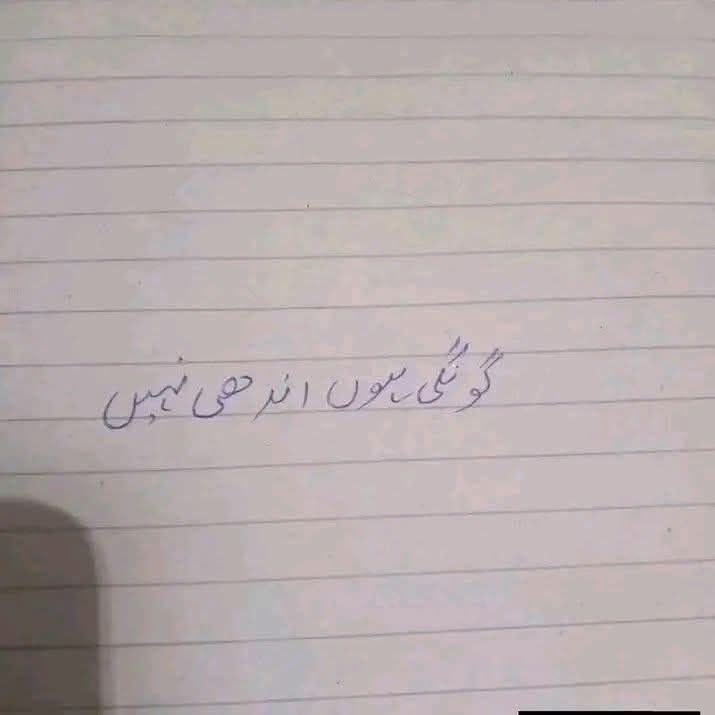 گونگی ہوں اندھی نہیں